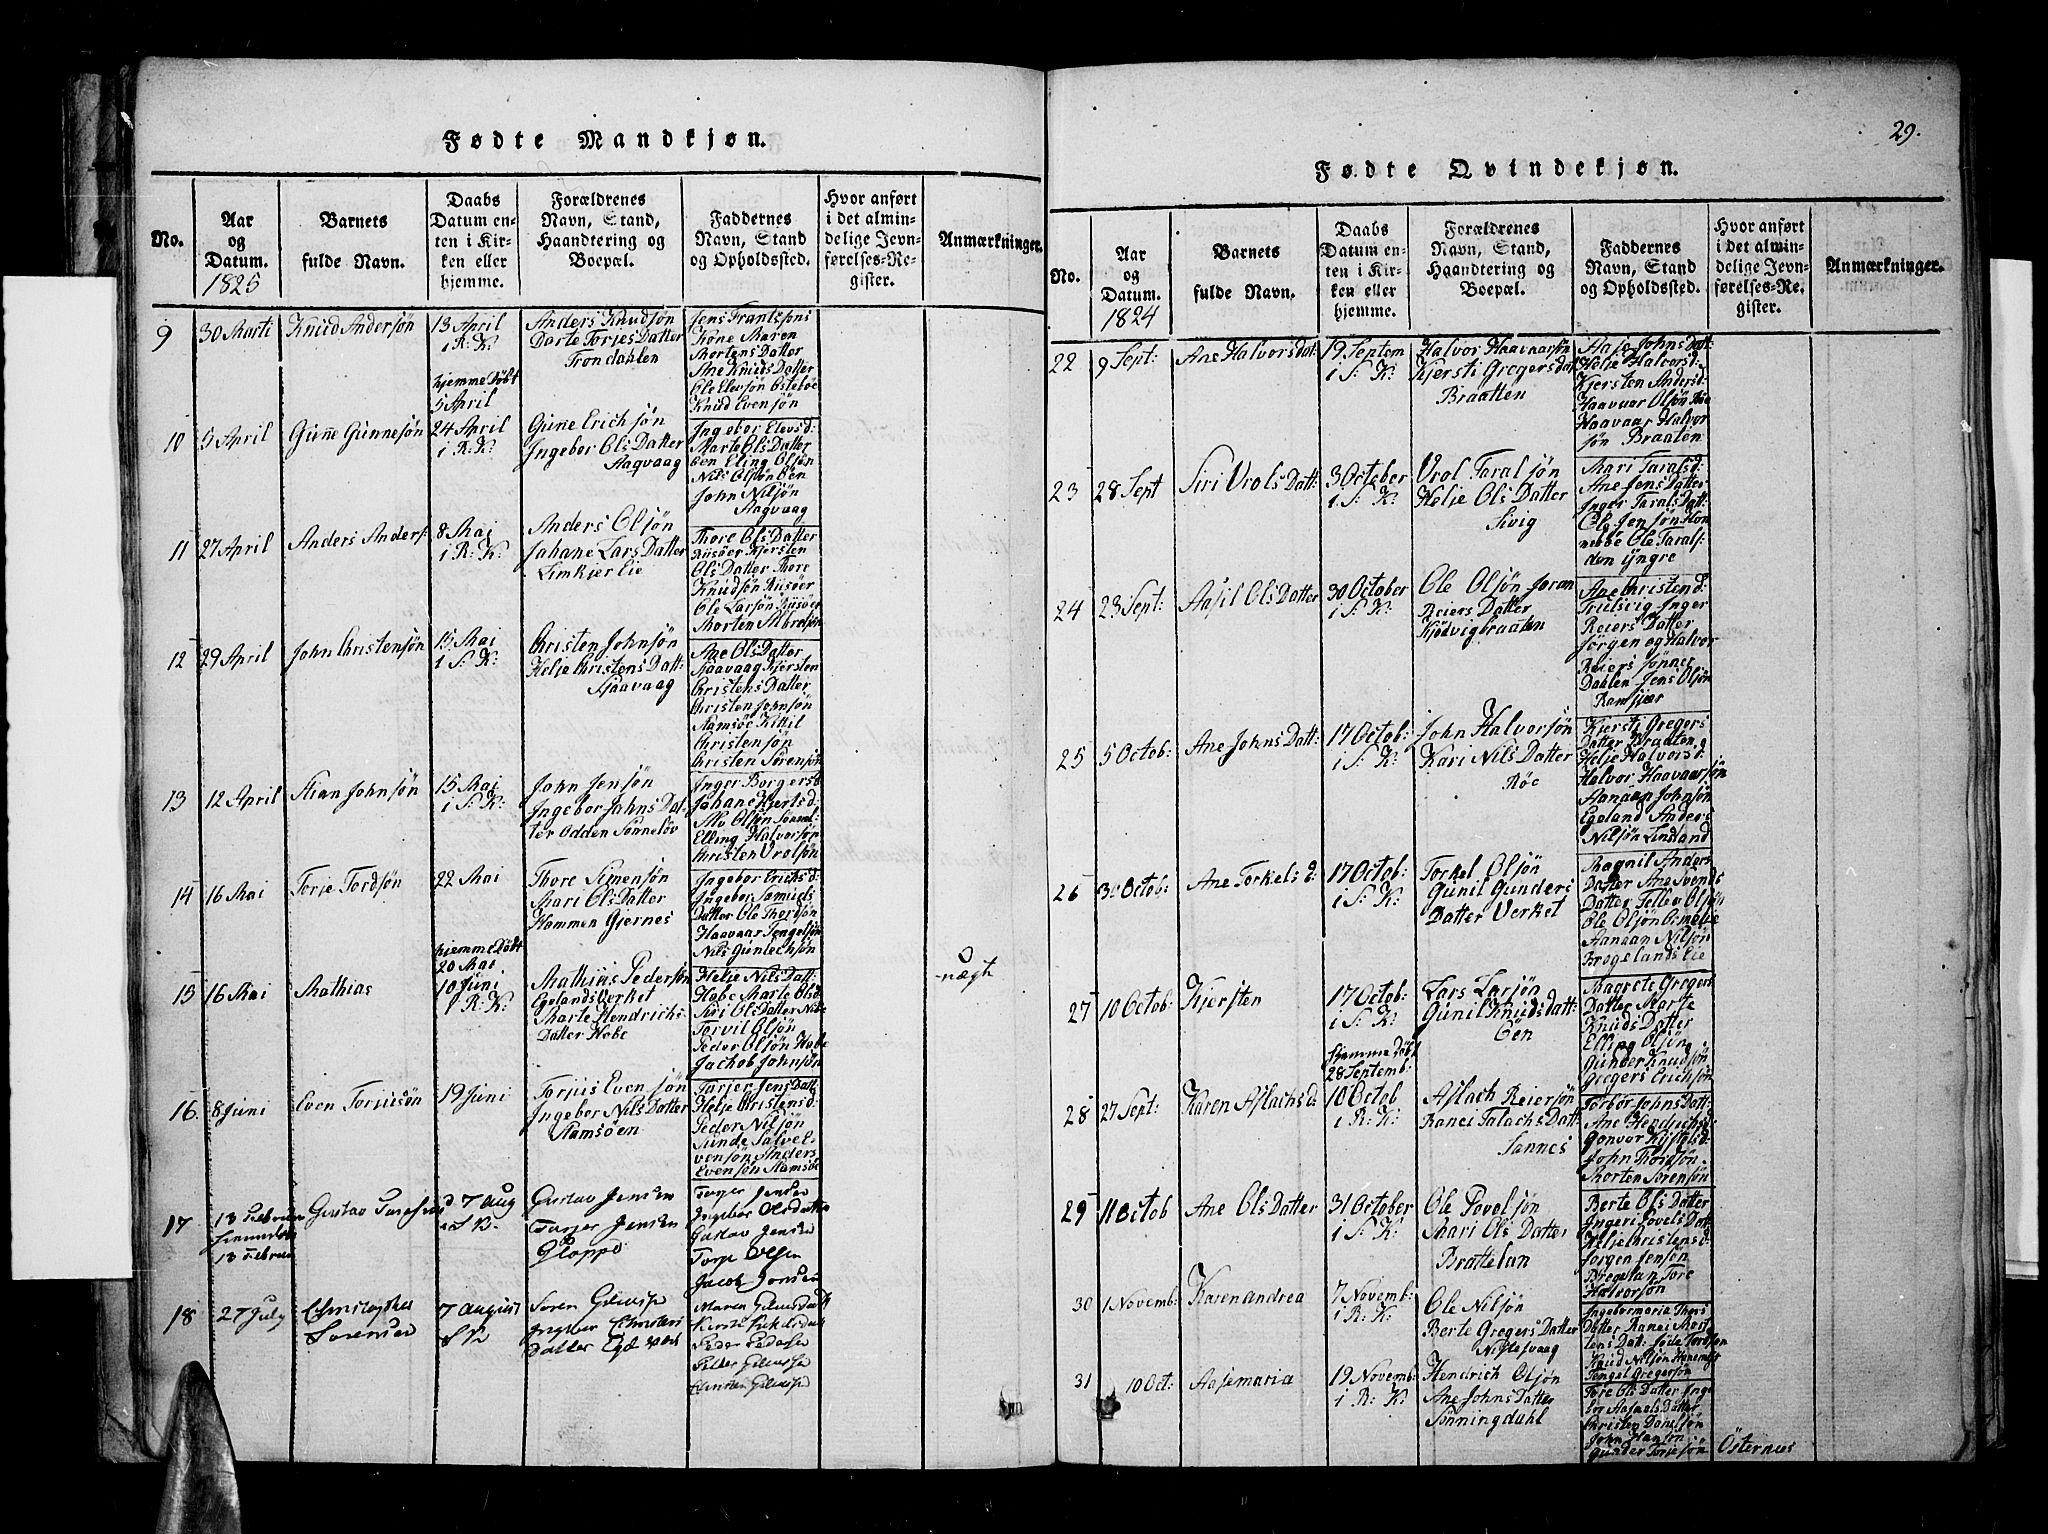 Fødte Mandkjøn.
No.
Aar
og
Datum.
1825
Barnets
fulde Navn.
Daabs
Datum en-
ten i Kir-
ken eller
hjemme.
Forældrenes
Navn, Stand,
Haandtering og
Boepæl.
Faddernes
Navn, Stand
og Opholdssted.
Hvor anført
i det almin-
delige Jevn-
førelses-Re-
gister.
Anmærkninger.
9
30 Marti
Knud Andersøn
13 April
i R: K:
hjemme Døbt
5 April
Anders Knudsøn
Dorte Torjes Datter
Trondahlen
Jens Frantsøns
Kone Maren
Mortens Datter
Ane Knuds Datter
Ole Elevsøn Osteboe
Knud Evensøn
10
5 April
Gunne Gunnesøn
24 April
i R: K:
Gune Erichsøn
Ingebor Ols Datter
Aaqvaag
Ingebor Elevs d:
Marte Ols Datter
Een Eling Olsøn
Nils Olsøn Een
John Nilsøn
Aaqvaag
11
27 April
Anders Anders:
8 Mai
i R: K:
Anders Olsøn
Johane Lars Datter
Limkjer Eie
Thore Ols Datter
Riisøer Kjersten
Ols Datter Thore
Knudsøn Riisøer
Ole Larsøn Riisøer
Morten Albretsøn
12
29 April
John Christensøn
15 Mai
i S: K:
Christen Johnsøn
Helje Christens Datt:
Sjaavaag
Ane Ols Datter
Sjaavaag Kjersten
Christens Datter
Christen Johnsøn
Ramsøe Kittil
Christensøn
Christen Sørensøn
13
12 April
Stian Johnsøn
15 Mai
i S: K:
John Jensøn
Ingebor Johns Dat-
ter Odden Sønneløv
Inger Borgers d
Johane Kjerts d:
Alv Olsøn Sønnel:
Elling Halvorsøn
Christen Vrolsøn
14
16 Mai
Torje Tordsøn
22 Mai
hjemme Døbt
20 Mai
Thore Simensøn
Mari Ols Datter
Hammen Gjernes
Ingebor Erichs d:
Ingebor Samuels
Datter Ole Thordsøn
Haavaar Tengelsøn
Nils Guntechsøn
15
16 Mai
Mathias
10 Juni
i R: K:
Mathiis Pedersøn
Egelands Verket
Marte Hendrichs
Datter Hobe
Helje Nils Datt:
Hobe Marte Ols d
Siri Ols Datter Nils
Torvil Olsøn
Peder Olsøn Hobe
Jachob Johnsøn
uægt
16
8 Juni
Even Torjusøn
19 Juni
Torjus Evensøn
Ingebor Nils Datter
Ramsøen
Torjer Jens Datt
Helje Christens d:
Peder Nilsøn
Sunde Salvel-
vensøn Anders
Evensøn Ramsøe
17
13 Februar
13 Februar
Gustav
7 Aug
Gustav Jensen
Torjer Jensen
Gloppe
Torger Jensen
Ingebor Olsdatter
Gustav Jensen
Torje Olsen
Jacob Jonsen
18
27 July
Christopher
Sørensen
7 August
S K
Søren
Ingebor Christens
Datter
Maren
Peder Pedersen
29.
Fødte Qvindekjøn.
No.
Aar
og
Datum.
1824
Barnets
fulde Navn.
Daabs
Datum en-
ten i Kir-
ken eller
hjemme.
Forældrenes
Navn, Stand,
Haandtering og
Boepæl.
Faddernes
Navn, Stand
og Opholdssted.
Hvor anført
i det almin-
delige Jevn-
førelses-Re-
gister.
Anmærkninger.
22
9 Sept:
Ane Halvors dat:
19 Septem
i S: K:
Halvor Haavaarsøn
Kjersti Gregers dat
Braatten
Aase Johns Datt
Helje Halvors d:
Kjersten Anders d:
Haavaar Olsøn
Haavaar Halvor
søn Braaten
23
28 Sept
Siri Vrols Datt:
3 October
i S: K:
Vrol Taralsøn
Helje Ols Datter
Sivig
Mari Tarals d:
Ane Jens Datter
Inger Tarals Datt:
Ole Jensøn Hom
nebbe Ole Tarals
den yngre
24
23 Sept:
Aasil Ols Datter
30 October
i S: K:
Ole Olsøn Joran
Reiers Datter
Kjødvigbraaten
Ane Christen d:
Trulsvig Inger
Reiers Datter
Jørgen og Halvor
Reiers sønner
Dahlen Jens Olsøn
Ramsjær
25
5 Octob:
Ane Johns Datt:
17 Octob:
i S: K:
John Halvorsøn
Kari Nils Datter
Røe
Kjersti Gregers
Datter Braaten
Helje Halvors d:
Halvor Haavaarsøn
Aanaan Johnsøn
Egeland Anders
Nilsøn Lindland
26
3 October
Ane Torkels d:
17 Octob:
i S: K:
Torkel Olsøn
Gunil Gunders
Datter Verket
Magnil Anders
Datter Ane Svends
Datter Tellev Olsøn
Ole Olsøn
Aanaan Nilsøn
Brogelands Eie
27
10 Octob:
Kjersten
17 Octob:
i S: K:
hjemme Døbt
28 Septemb:
Lars Larsøn
Gunil Knuds datt:
Een
Magrete Gregers
Datter Marte
Knuds Datter
Elling Olsøn
Gunder Knudsøn
Gregers Erichsøn
28
27 Sept:
Karen Aslachs d:
10 Octob
i R: K:
Aslach Reiersøn
Ranei Talachs Datt:
Sannes
Torbor Johns Datt:
Ane Hendrichs d:
Gonvor Kistels d:
John Thordsøn
Morten Sørensøn
29
11 Octob
Ane Ols Datter
31 October
i S: K:
Ole Povelsøn
Mari Ols Datter
Brattelan
Berte Ols Datter
Ingeri Povels Datt
Helje Christens d:
Jørgen Jensøn
Bregelan Tore
Halvorsøn
30
1 Novemb:
Karen andrea
7 Novemb:
i R: K:
Ole Nilsøn
Berte Gregers Datter
Nistesvaag
Ingebormaria Thors
Datter Ranei Mor
tens Datt: Jøde Tordsøn
Knud Nilsøn
Tengel Gregersøn
31
10 Oct:
Aasemaria
19 Novemb:
i R: K:
Hendrich Olsøn
Ane Johns Datter
Sønningdahl
Tore Ols Datter Inge
bor Aasuels Datter
Christen Danelsøn
John Hansøn
Gunder Torjesøn
Østernes